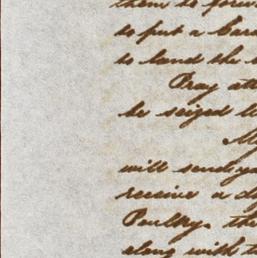 them to forw
to put a Car
to land the
Pray att
be seized
My
will send yo
receive a d
Poultry. the
along with t